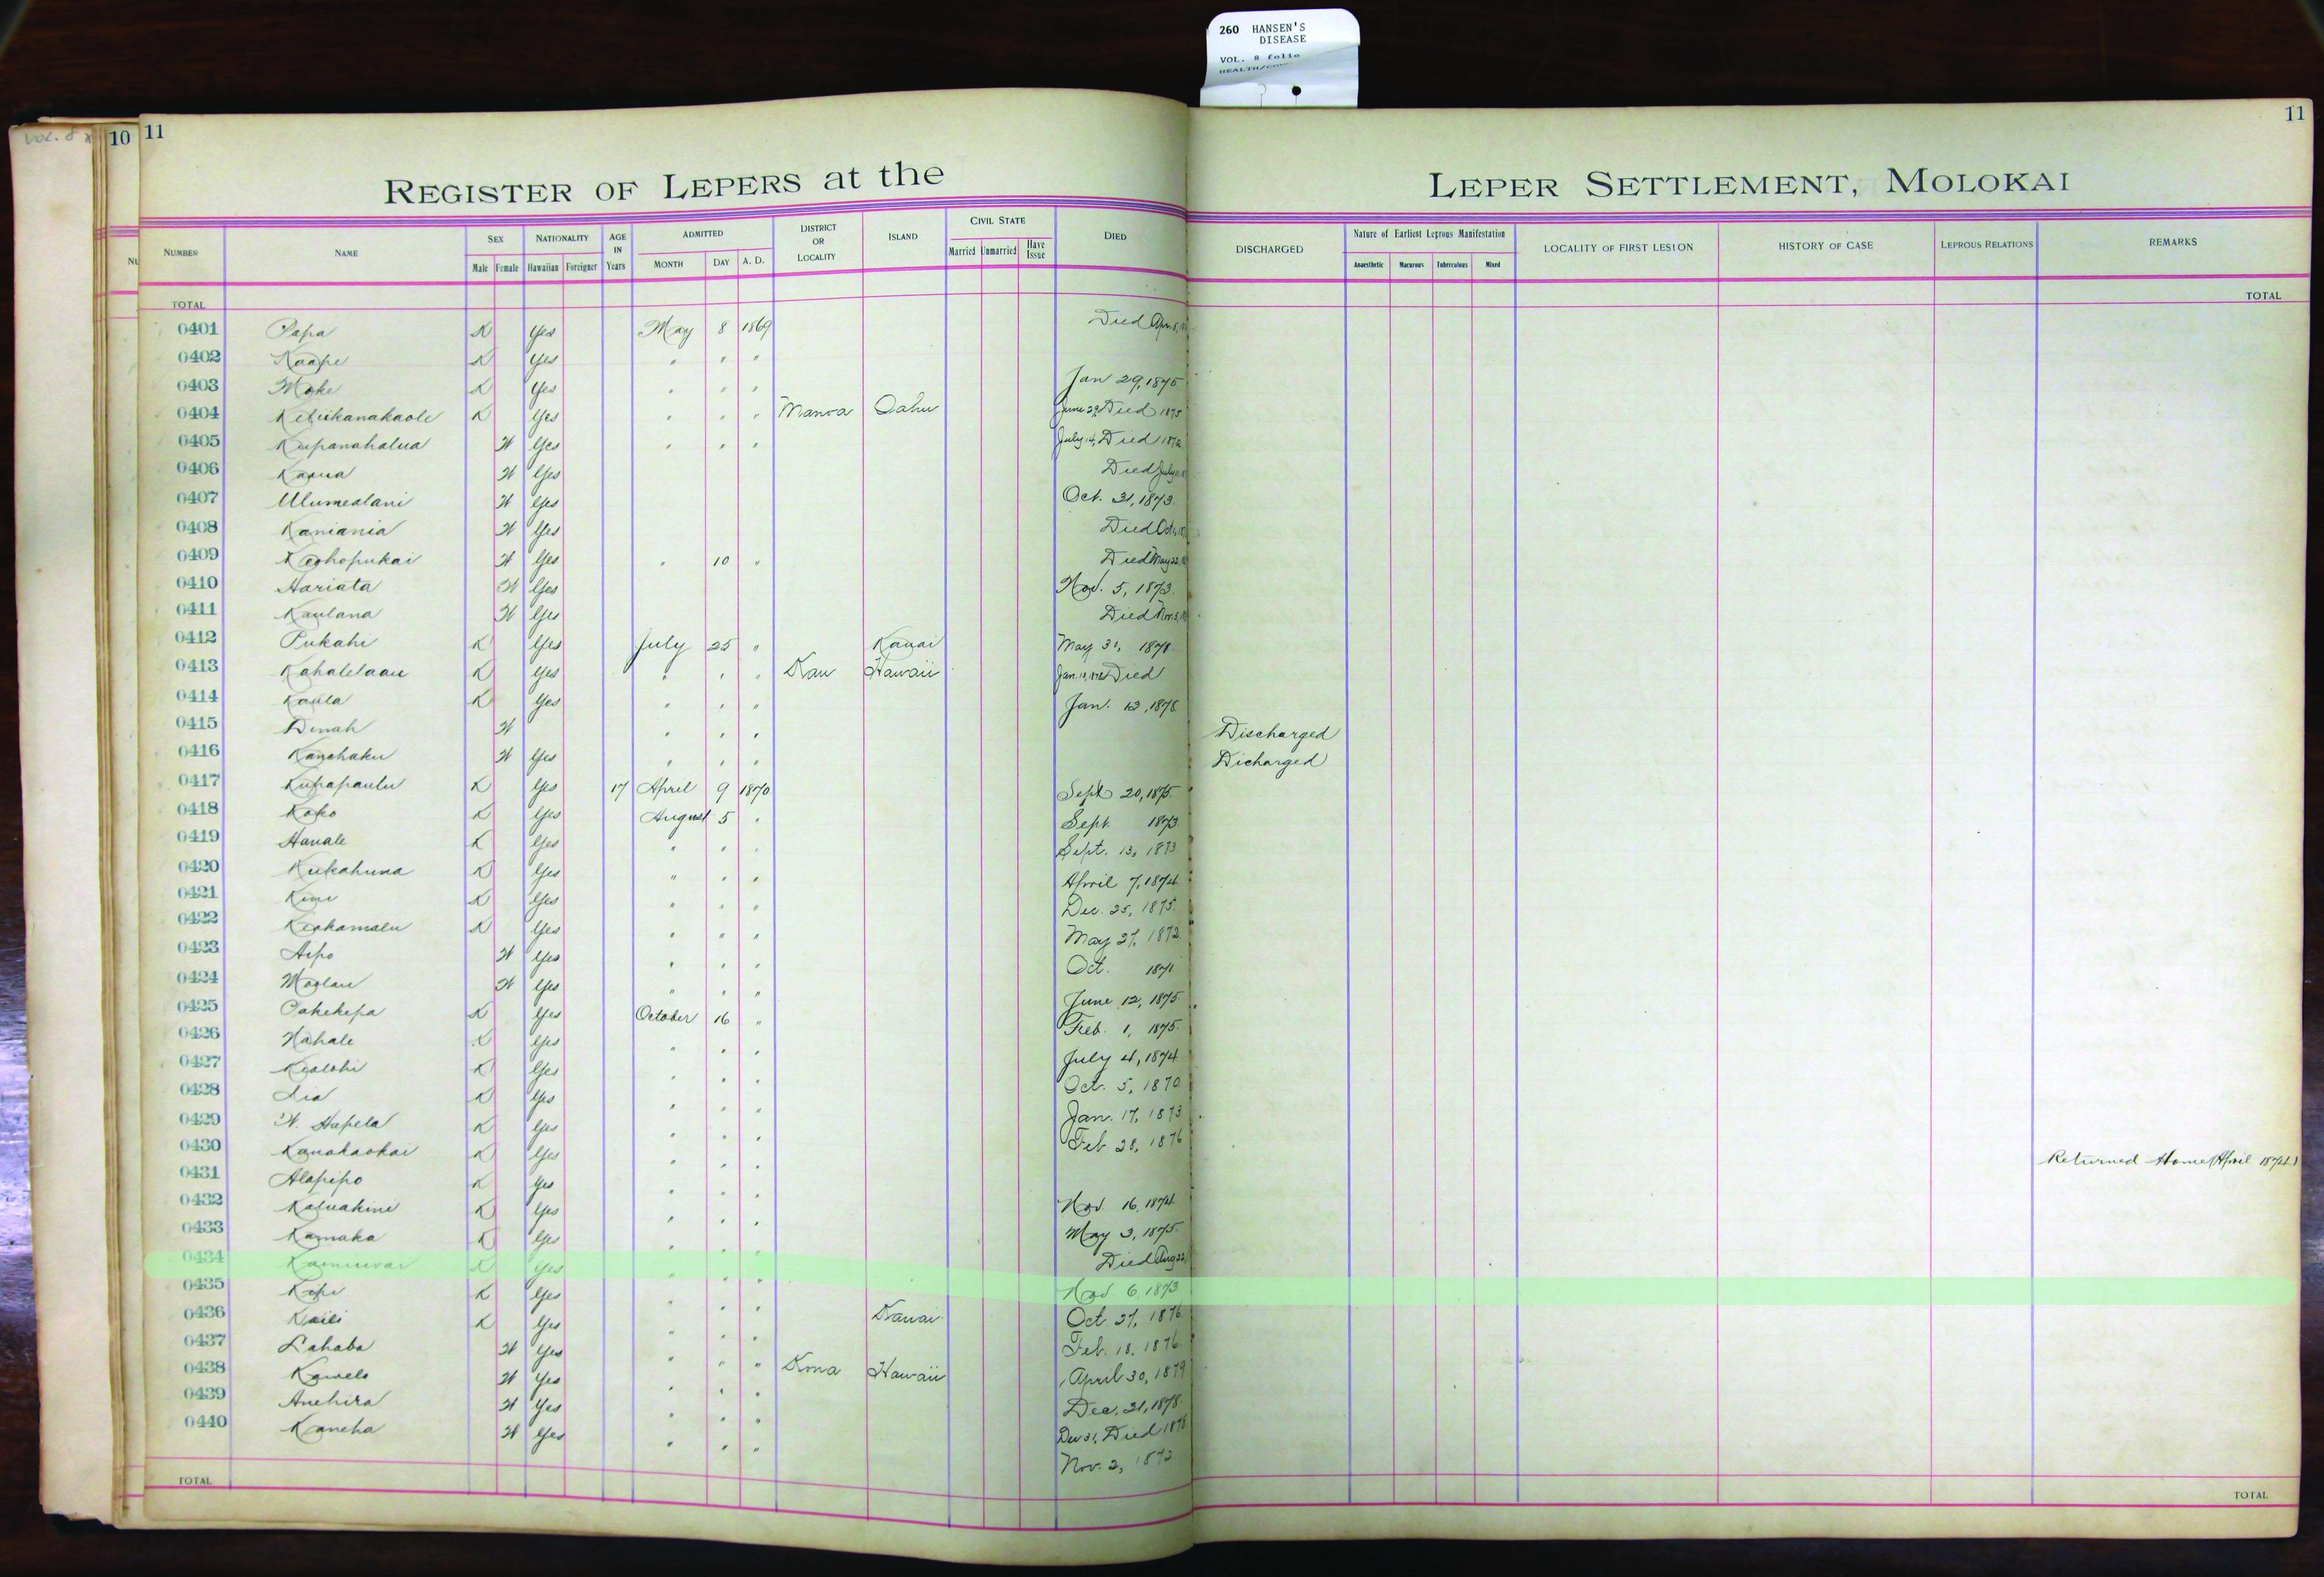 260 HANSEN'S
DISEASE
VOL. 8 folio
VOL. 8
10 11
11
REGISTER OF LEPERS at the LEPER SETTLEMENT, MOLOKAI
NUMBER NAME SEX Male Female NATIONALITY Hawaiian Foreigner AGE IN Years ADMITTED MONTH DAY A. D. DISTRICT OR LOCALITY ISLAND CIVIL STATE Married Unmarried Have Issue DIED DISCHARGED Nature of Earliest Leprous Manifestation Anaesthetic Macurous Tuberculous Mixed LOCALITY OF FIRST LESION HISTORY OF CASE LEPROUS RELATIONS REMARKS
TOTAL TOTAL
0401 Papa K Yes May 8 1869 Died Apr. 8,
0402 Kaape K Yes " " "
0403 Moke K Yes " " " Jan 29, 1875
0404 Keliikanakaole K Yes " " " Manoa Oahu June 29, Died 1875
0405 Kupanahalua W Yes " " " July 14, Died 1872
0406 Kaoua W Yes Died July
0407 Ulumealani W Yes Oct. 31, 1873.
0408 Kaniania W Yes Died Oct.
0409 Keohopukai W Yes " 10 " Died May 22,
0410 Hariata W Yes Nov. 5, 1873.
0411 Kaulana W Yes Died Nov. 5,
0412 Pukahi K Yes July 25 " Kauai May 31, 1878.
0413 Kahalelaau K Yes " " " Kau Hawaii Jan. Died
0414 Kaula K Yes " " " Jan. 13, 1878.
0415 Dinah W " " " Discharged
0416 Kanehaku W Yes " " " Dicharged
0417 Kupapaulu K Yes 17 April 9 1870 Sept 20, 1875.
0418 Koko K Yes August 5 " Sept. 1873
0419 Hanale K Yes " " " Sept. 13, 1873
0420 Kukahuna K Yes " " " April 7, 1874
0421 Kini K Yes " " " Dec. 25, 1875.
0422 Keakamalu K Yes " " " May 27, 1872.
0423 Aipo W Yes " " " Oct. 1871
0424 Moolau W Yes " " " June 12, 1875
0425 Pakekepa K Yes October 16 " Feb. 1, 1875.
0426 Nahale K Yes " " " July 4, 1874
0427 Kealohi K Yes " " " Oct. 5, 1870
0428 Lia K Yes " " " Jan. 17, 1873
0429 W. Hapela K Yes " " " Feb 28, 1876
0430 Kanakaokai K Yes " " " Returned Home (April 1874)
0431 Alapipo K Yes " " " Nov 16, 1874
0432 Kaluakini K Yes " " " May 3, 1875.
0433 Kamaka K Yes " " " Died Aug 22,
0434 K Yes " " " Nov 6, 1873
0435 Kopi K Yes " " " Oct. 27, 1876
0436 Kaili K Yes " " " Kauai Feb. 18, 1876
0437 Lahaba W Yes " " "
0438 Kawelo W Yes " " " Kona Hawaii April 30, 1879
0439 Anehira W Yes " " " Dec. 31, 1878.
0440 Kaneha W Yes " " " Dec 31, Died 1878
Nov. 2, 1872
TOTAL TOTAL